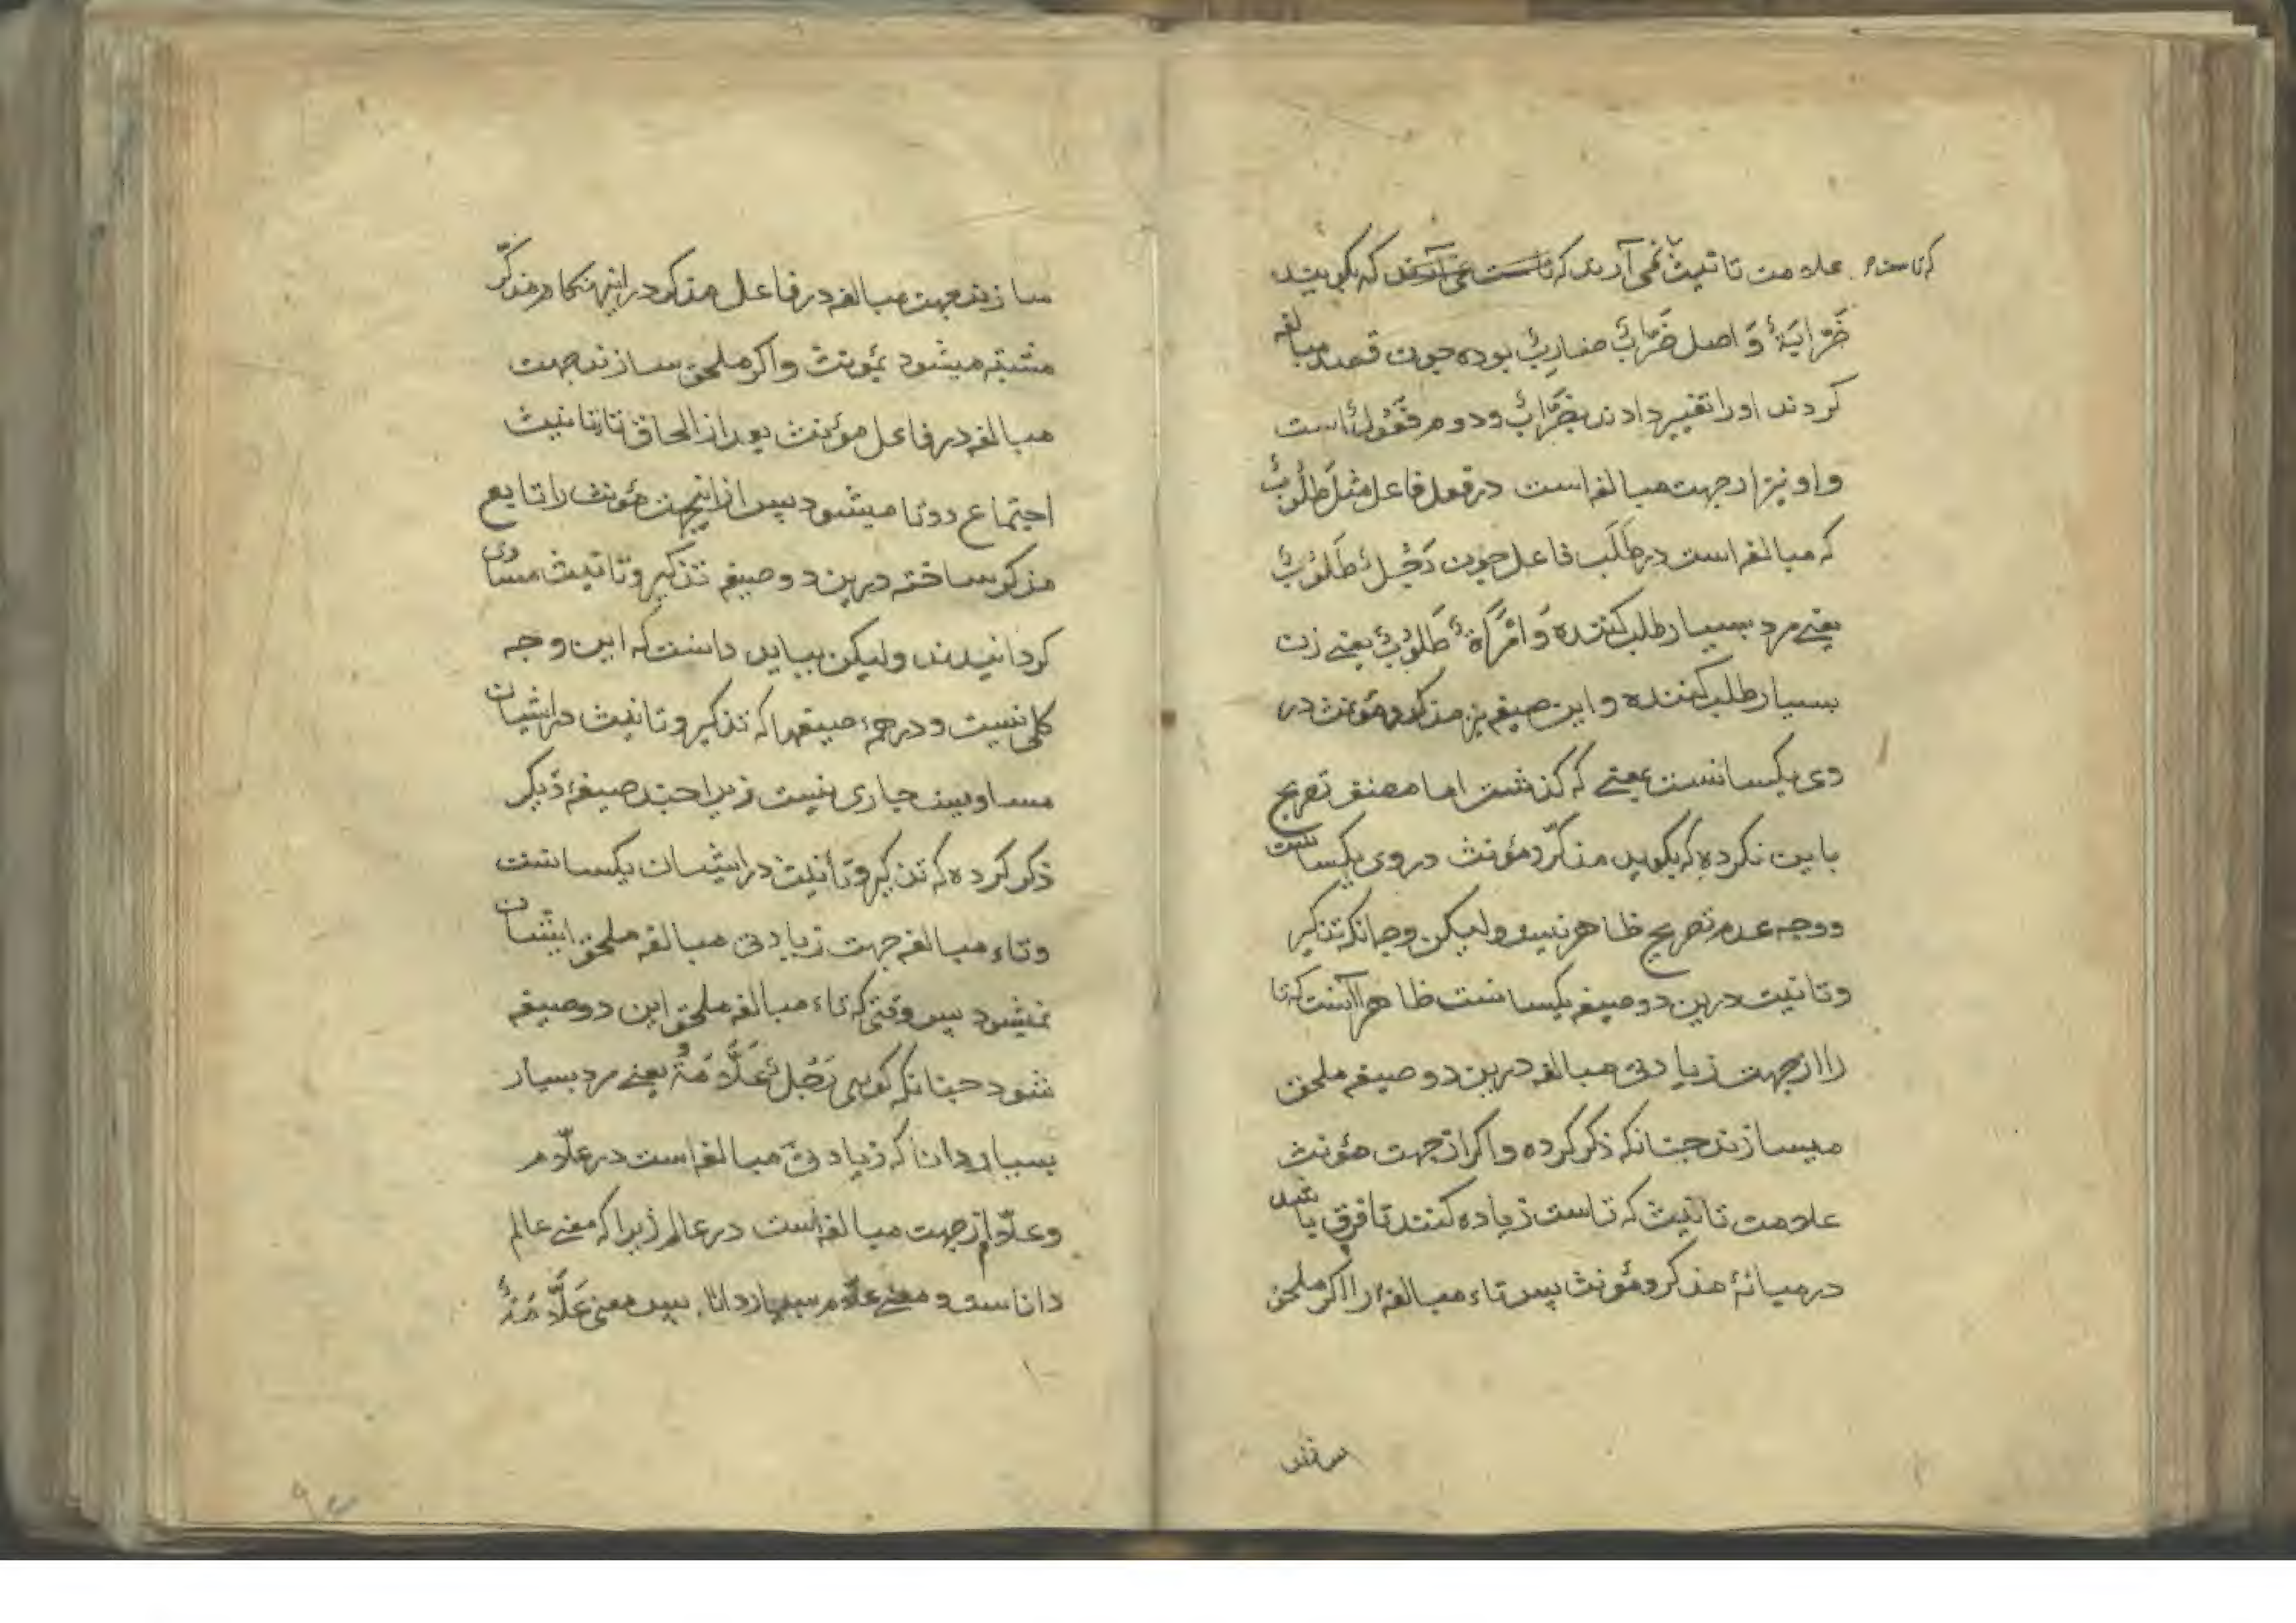 که تاست
علامت تانیث نمی آرند که تاست نمی آرند که بگویند
ضَرّابَةٌ وَ اصل ضَرّابٌ ضارِبٌ بوده چون قصد مبالغه
کردند او را تغییر دادند بضَرّابٌ و دوم فَعُولٌ است
و او نیز از جهت مبالغه است در فعل فاعل مثل طَلُوبٌ
که مبالغه است در طَلَب فاعل چون رَجُلٌ طَلُوبٌ
یعنے مرد بسیار طلب کننده وَ امْرَاَةٌ طَلُوبٌ یعنے زن
بسیار طلب کننده و این صیغه نیز مذکر و مؤنث در
وی یکسانست بمعنے که گذشت اما مصنف تصریح
باین نکرده که بگوید مذکّر و مؤنث در وی یکسانست
و وجه عدم تصریح ظاهر نیست ولیکن وجه آنکه تذکیر
و تانیث درین دو صیغه یکسانست ظاهرا آنست که تا
را از جهت زیادتی مبالغه درین دو صیغه ملحق
میسازند چنانکه ذکر کرده و اکر از جهت مؤنث
علامت تانیث که تاست زیاده کنند تا فرق باشد
در میانهٔ مذکر و مؤنث پس تاء مبالغه را اکر ملحق
سازند
سازند جهت مبالغه در فاعل مذکر در اینهنکام مذکّر
مشتبه میشود بمؤنث و اکر ملحق سازند جهت
مبالغه در فاعل مؤنث بعد از الحاق تا تانیث
اجتماع دو تا میشود پس از اینجهت مؤنث را تابع
مذکر ساخته درین دو صیغه تذکیر و تانیث مساوی
کردانیدند ولیکن بباید دانست که این وجه
کلی نیست و در همهٔ صیغها که تذکیر و تانیث در ایشان
مساویند جاری نیست زیرا چند صیغهٔ دیکر
ذکر کرده که تذکیر و تأنیث در ایشان یکسانست
و تاء مبالغه جهت زیادتی مبالغه ملحق ایشان
نمیشود پس وقتی که تاء مبالغه ملحق این دو صیغه
شود چنانکه کویی رَجُلٌ عَلّامَةٌ یعنے مرد بسیار
بسیار دانا که زیادتی مبالغه است در علّام
و علّام از جهت مبالغه است در عالم زیرا که معنے عالم
داناست و معنے علّام بسیار دانا پس معنی عَلّامَةٌ